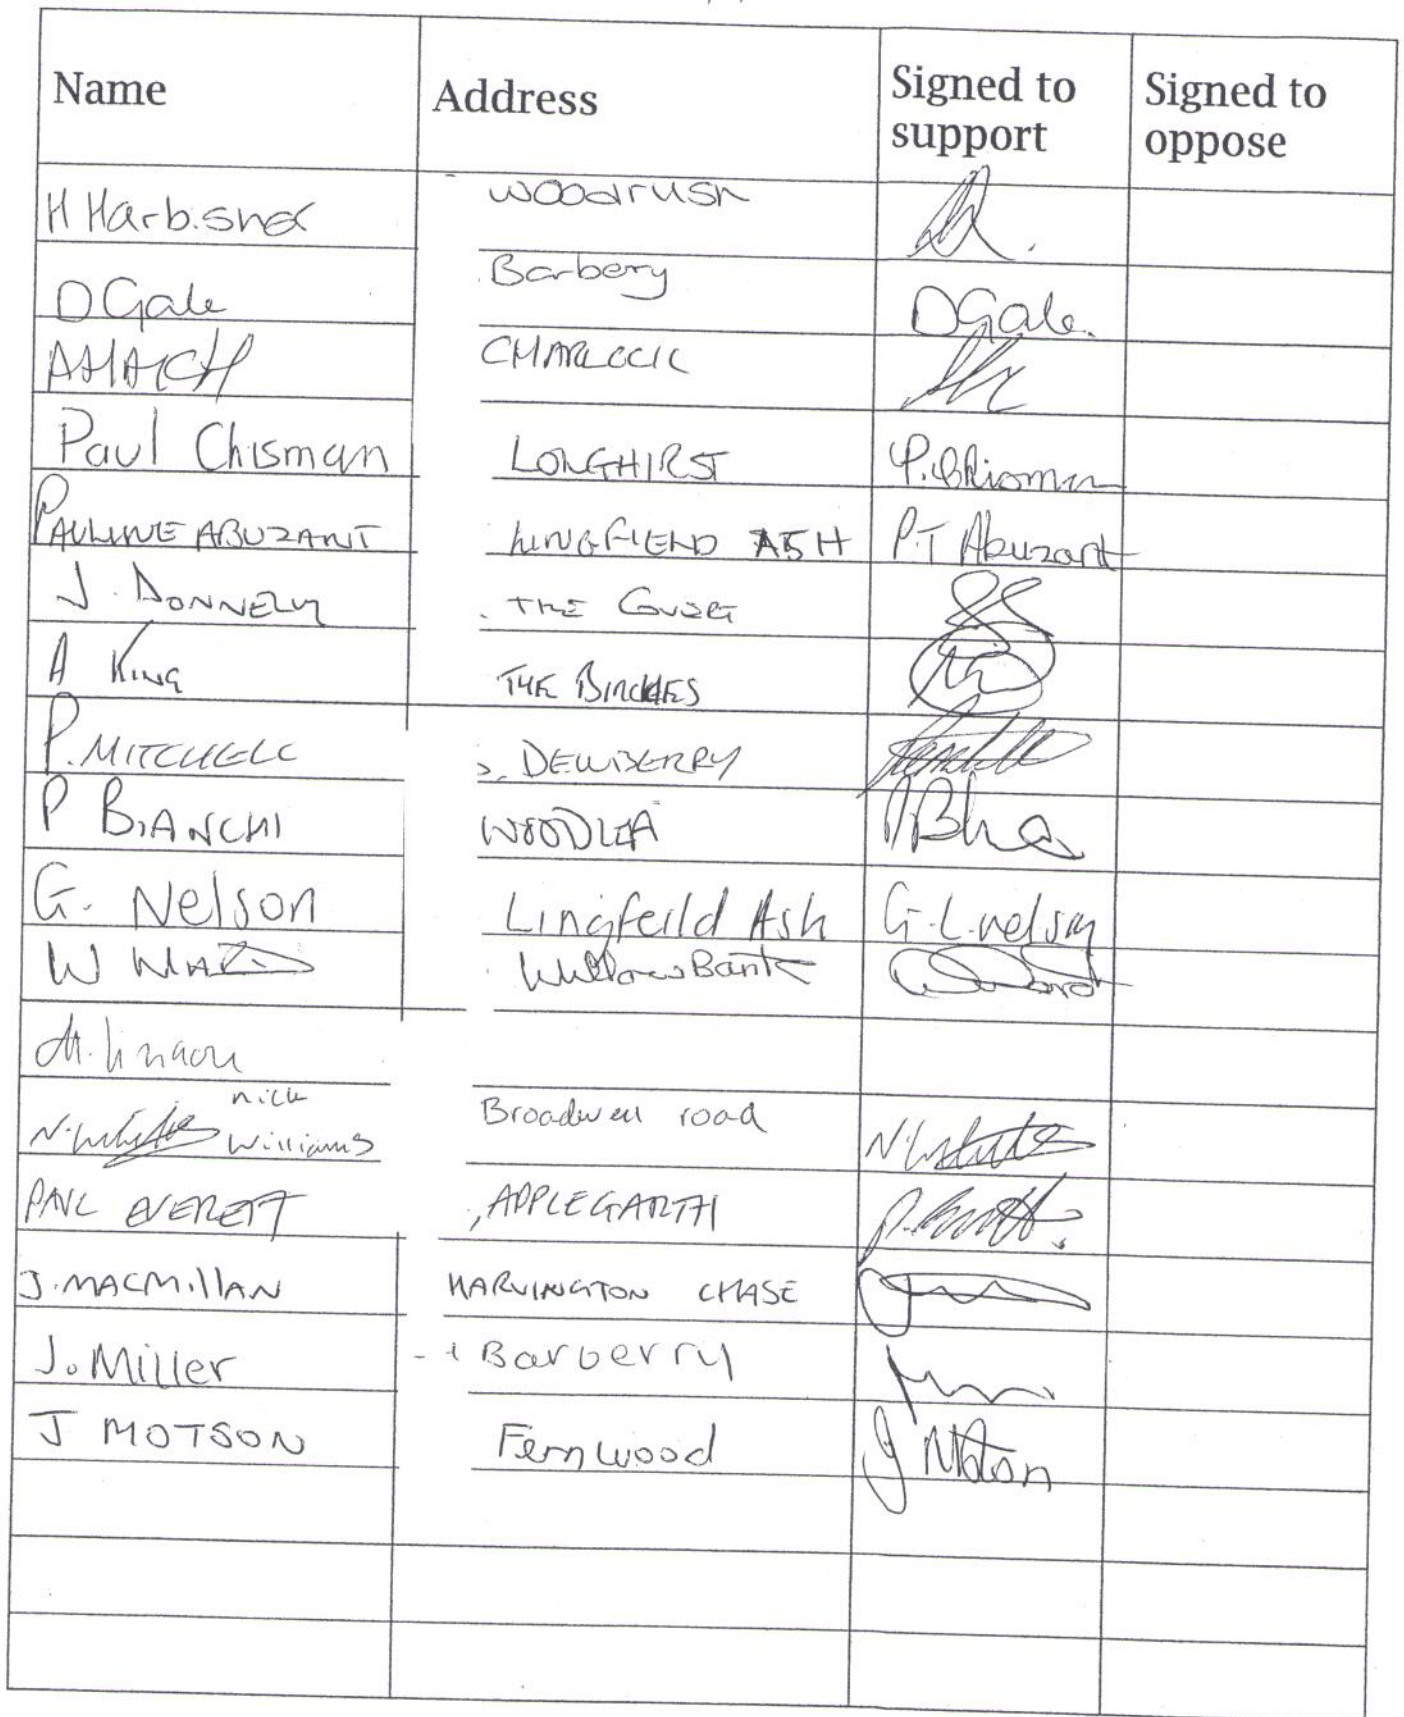 Name Address Signed to support Signed to oppose
H Harbisher Woodrush
D Gale Barbery D Gale.
A HATCH CHARLOCK
Paul Chisman LONGHIRST P. Chisman
PAULINE ABUZANT LINGFIELD ASH P.T Abuzant
J. DONNELLY THE COURT
A KING THE BIRCHES
P. MITCHELL DEWBERRY
P BIANCHI WOODLEA
G. Nelson Lingfeild Ash G.L.nelson
W Willow Bank
nick
williams Broadwell road
PAUL EVERETT APPLEGARTH
J. MACMillAN HARVINGTON CHASE
J. Miller Barberry
J MOTSON Fernwood J Motson